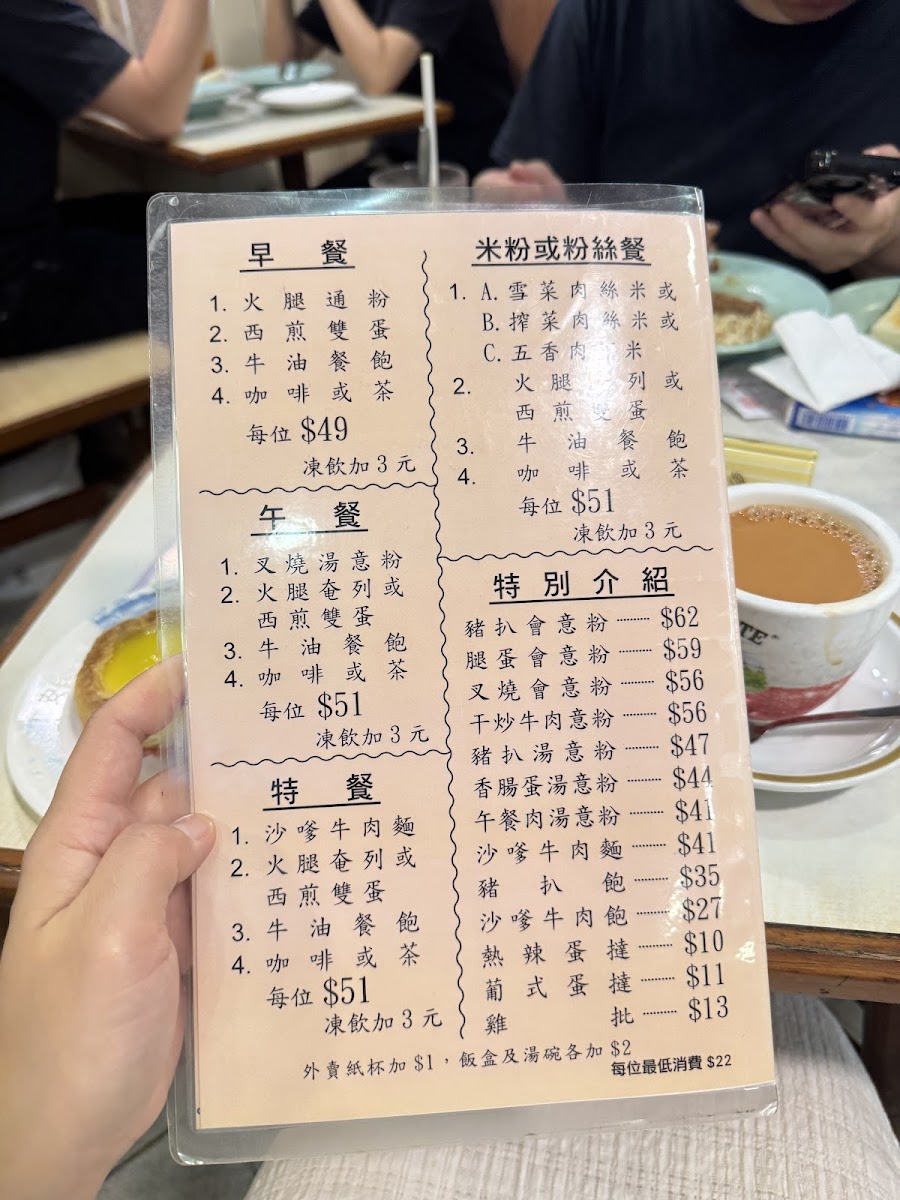 早 餐
1. 火腿通粉
2. 西煎雙蛋
3. 牛油餐飽
4. 咖啡或茶
每位 $49
凍飲加3元
午 餐
1. 叉燒湯意粉
2. 火腿奄列或
西煎雙蛋
3. 牛油餐飽
4. 咖啡或茶
每位 $51
凍飲加3元
特 餐
1. 沙嗲牛肉麵
2. 火腿奄列或
西煎雙蛋
3. 牛油餐飽
4. 咖啡或茶
每位 $51
凍飲加3元
米粉或粉絲餐
1. A. 雪菜肉絲米或
B. 搾菜肉絲米或
C. 五香肉 米
2. 火腿 列或
西煎雙蛋
3. 牛油餐飽
4. 咖啡或茶
每位 $51
凍飲加3元
特別介紹
豬扒會意粉 ········ $62
腿蛋會意粉 ········ $59
叉燒會意粉 ········ $56
干炒牛肉意粉 ········ $56
豬扒湯意粉 ········ $47
香腸蛋湯意粉 ········ $44
午餐肉湯意粉 ········ $41
沙嗲牛肉麵 ········ $41
豬扒飽 ········ $35
沙嗲牛肉飽 ········ $27
熱辣蛋撻 ········ $10
葡式蛋撻 ········ $11
雞批 ········ $13
外賣紙杯加 $1，飯盒及湯碗各加 $2
每位最低消費 $22